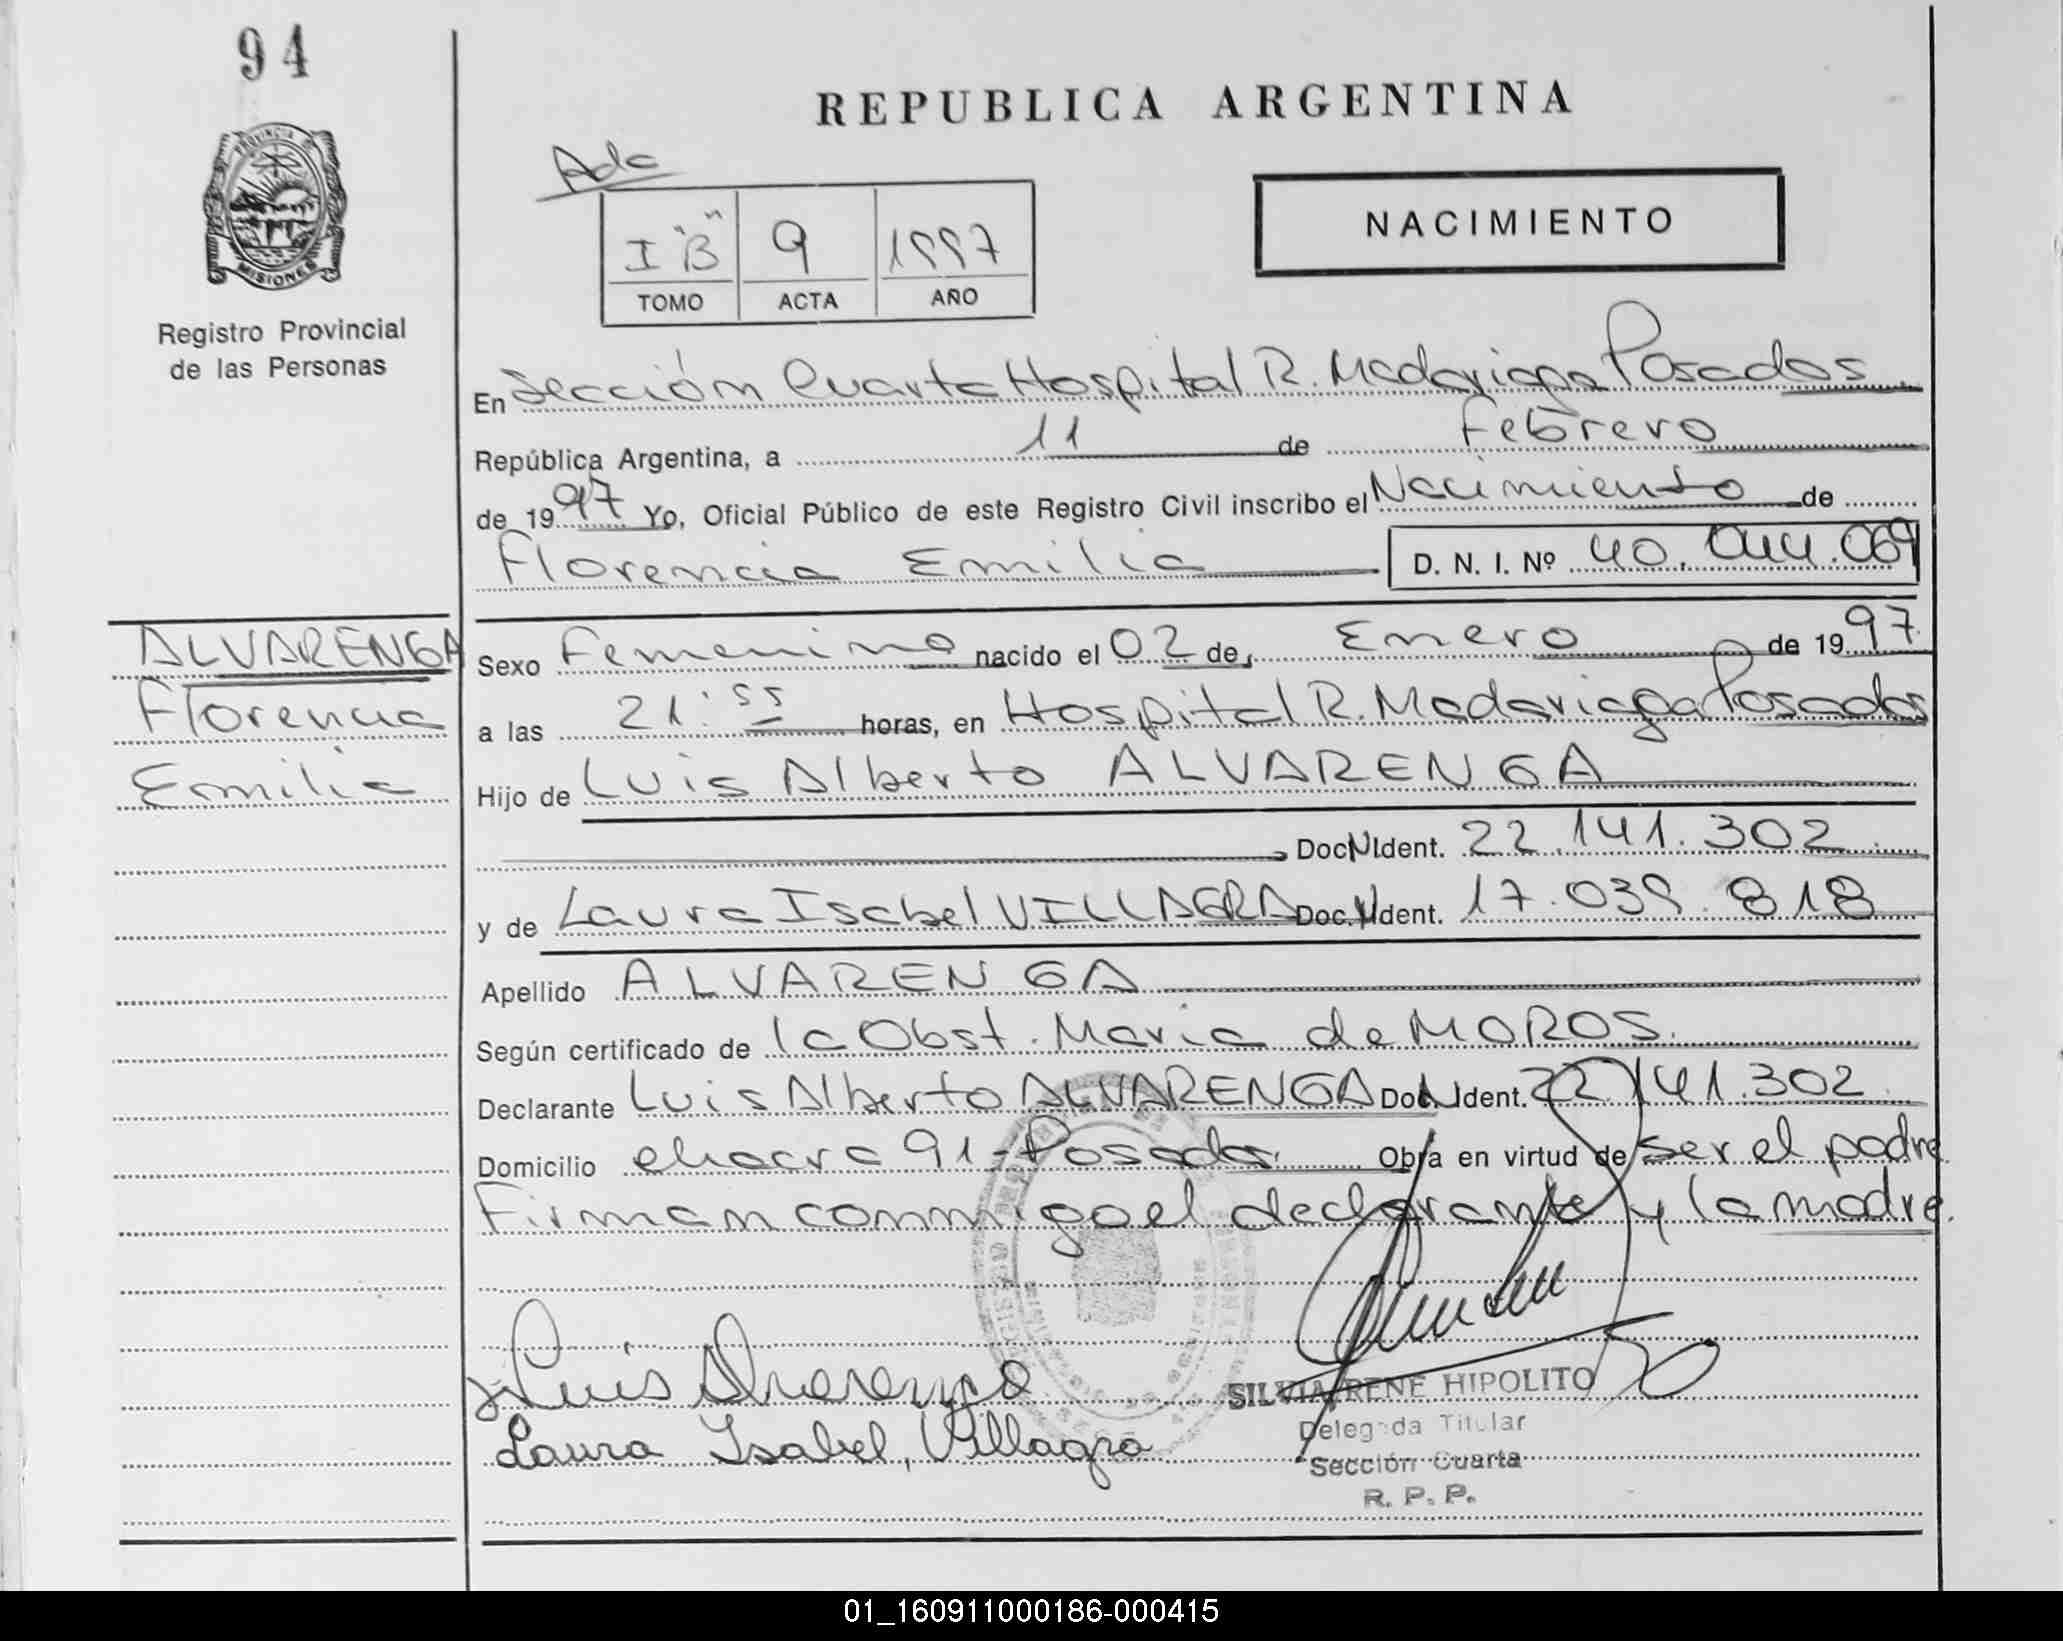 94
REPUBLICA ARGENTINA
Adc
PROVINCIA DE
MISIONES
Registro Provincial
de las Personas
I "B" 9 1997
TOMO ACTA AÑO
NACIMIENTO
En Sección Cuarta Hospital R. Madariaga Posadas
República Argentina, a 11 de Febrero
de 1997 Yo, Oficial Público de este Registro Civil inscribo el Nacimiento de
Florencia Emilia D. N. I. Nº 40.044.069
ALVARENGA
Florencia
Emilia
Sexo Femenino nacido el 02 de Enero de 1997
a las 21:55 horas, en Hospital R. Madariaga Posadas
Hijo de Luis Alberto ALVARENGA
Doc.N.Ident. 22.141.302
y de Laura Isabel VILLAGRA Doc.N.Ident. 17.039.818
Apellido ALVARENGA
Según certificado de la Obst. Maria de MOROS.
Declarante Luis Alberto ALVARENGA Doc.N.Ident. 22.141.302
Domicilio chacra 91 - Posadas. Obra en virtud de ser el padre.
Firman conmigo el declarante y la madre.
Luis Alvarenga
Laura Isabel, Villagra
SILVIA RENE HIPOLITO
Delegada Titular
Sección Cuarta
R. P. P.
01_160911000186-000415